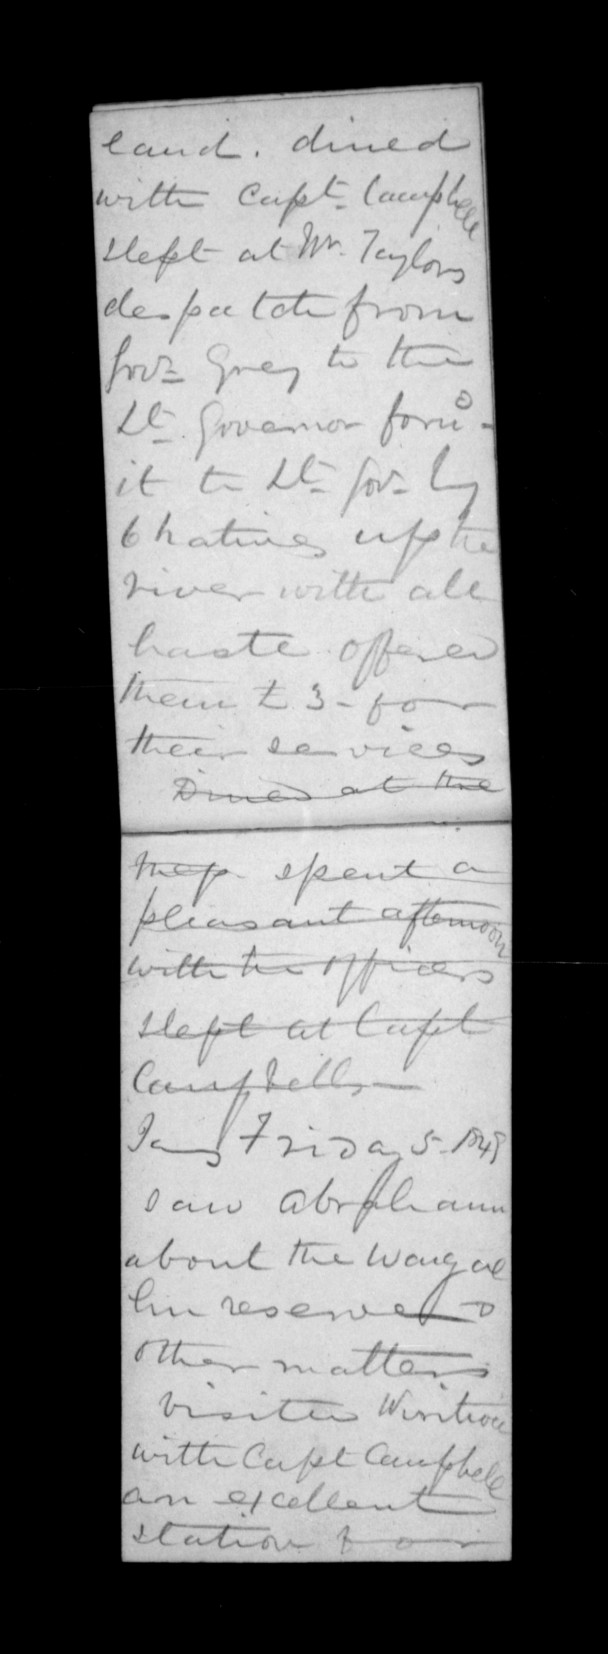 land. dined
with Capt. Campbell
slept at Mr. Taylors
despatch from
Govr. Grey to the
Lt. Governor forwd.
it to Lt. Gov. by
6 natives up the
river with all
haste offered
them £3 - for
their services
Dined at the
Mess spent a
pleasant afternoon
with the officers
slept at Capt
Campbells
Jany Friday 5. 1849
saw Abraham
about the
reserve &
other matters
visited
with Capt Campbell
an excellent
station for